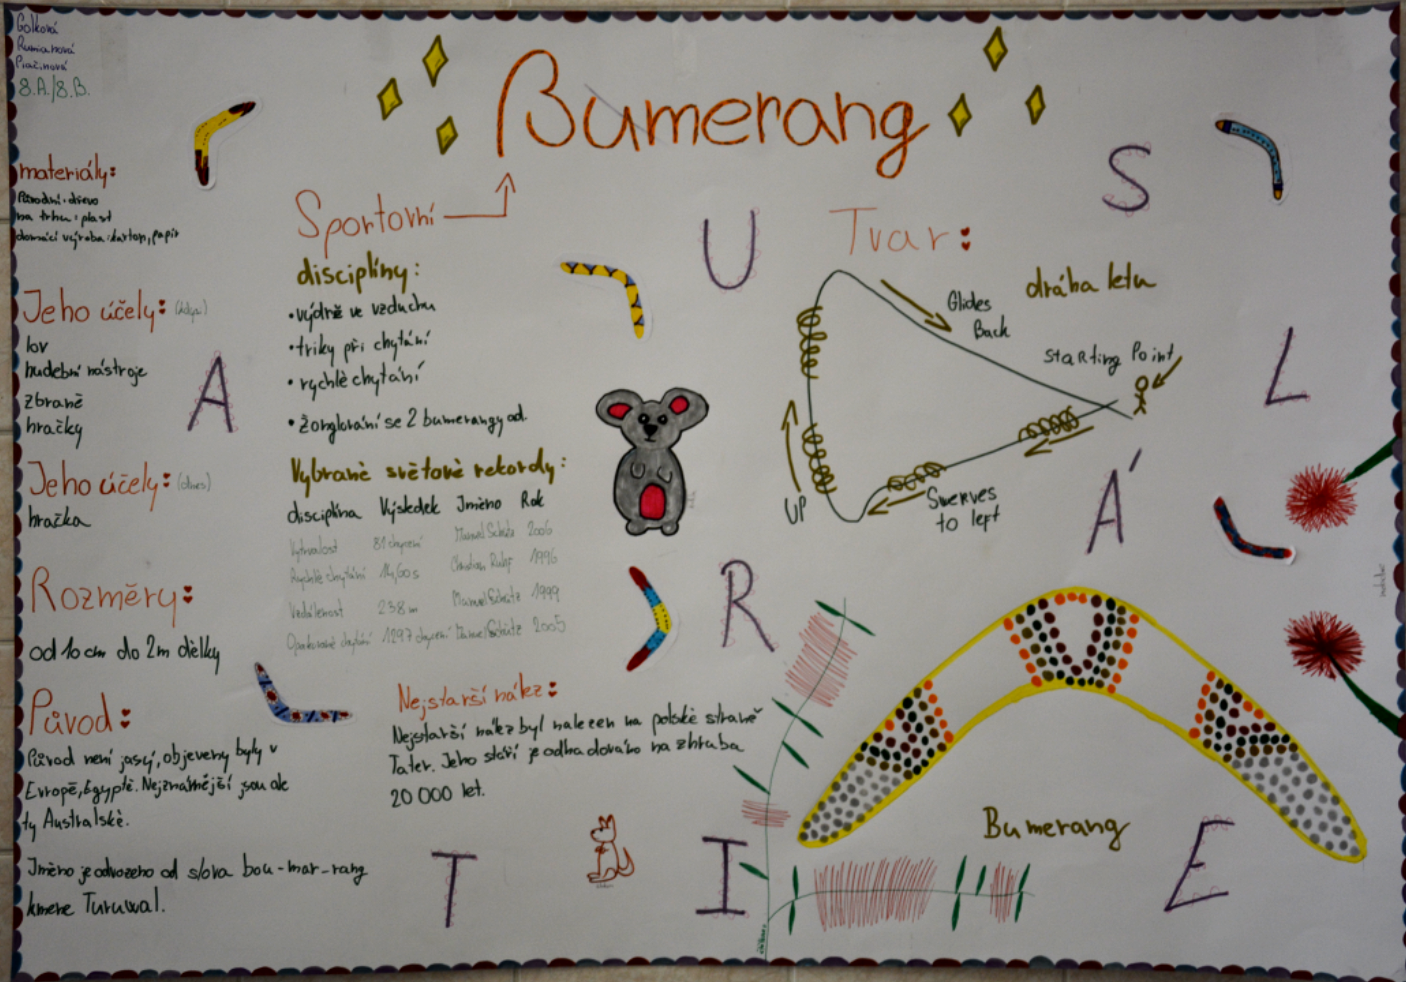 Golková
Rumianová
8.A./8.B.
Bumerang
materiály:
Původní: dřevo
na trhu: plast
domácí výroba: karton, papír
Jeho účely:
lov
hudební nástroje
zbraně
hračky
Jeho účely: (dnes)
hračka
Rozměry:
od 10 cm do 2m délky
Původ:
Původ není jasý, objeveny byly v
Evropě, Egyptě. Nejznámější jsou ale
ty Australské.
Jméno je odvozeno od slova bou-mar-rang
kmene Turuwal.
Sportovní
disciplíny:
•výdrž ve vzduchu
•triky při chytání
•rychlé chytání
•Žonglování se 2 bumerangy od.
Vybrané světové rekordy:
disciplína Výsledek Jméno Rok
Vytrvalost 81 chycení Manuel Schütz 2006
Rychlé chytání 14,60 s 1996
Vzdálenost 238 m Manuel Schütz 1999
Opakované chytání 1297 chycení Manuel Schütz 2005
Nejstarší nález:
Nejstarší nález byl nalezen na polské straně
Tater. Jeho stáří je odhadováno na zhruba
20 000 let.
Tvar:
dráha letu
Glides
Back
Starting Point
UP
Swerves
to left
Bumerang
A
U
S
T
R
Á
L
I
E